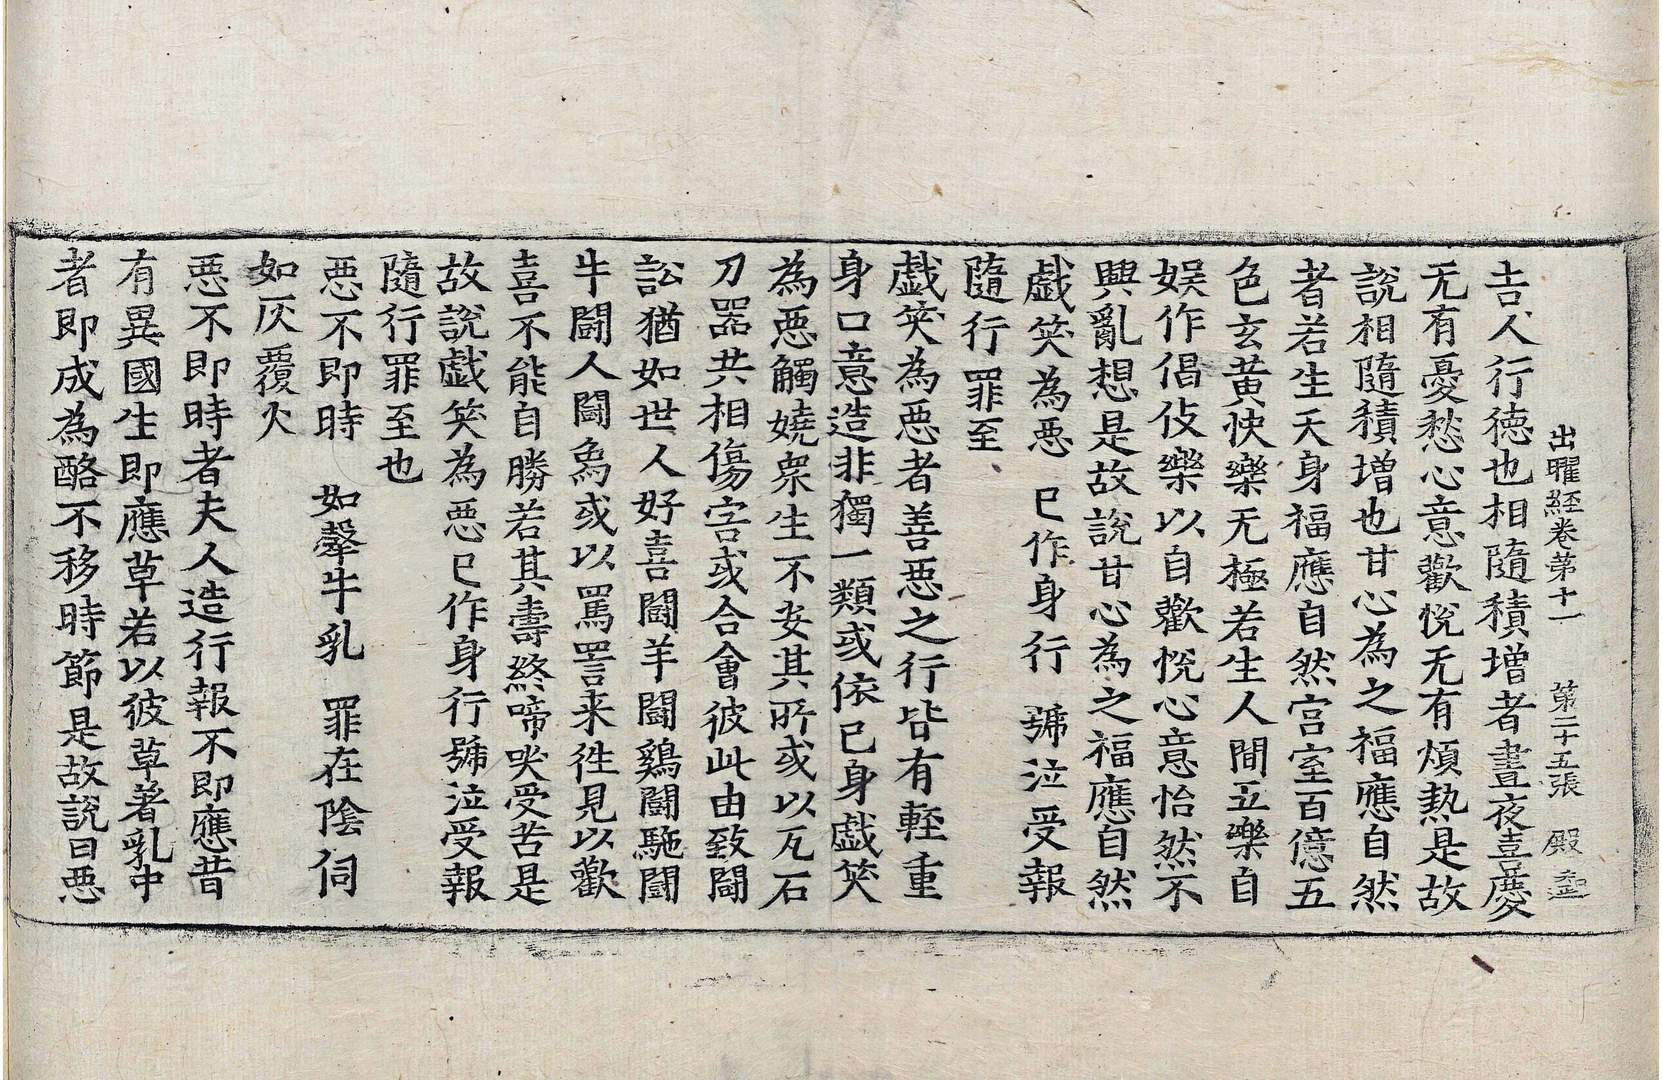 出曜経卷第十一 第二十五張 殿
吉人行德也相隨積增者晝夜喜慶
无有憂愁心意歡悅无有煩熱是故
說相隨積增也甘心為之福應自然
者若生天身福應自然宮室百億五
色玄黃快樂无極若生人間五樂自
娛作倡伎樂以自歡悅心意怡然不
興亂想是故說甘心為之福應自然
戲笑為惡 已作身行 號泣受報
隨行罪至
戲笑為惡者善惡之行皆有輕重
身口意造非獨一類或依已身戲笑
為惡觸嬈衆生不安其所或以瓦石
刀器共相傷害或合會彼此由致鬪
訟猶如世人好喜鬪羊鬪鷄鬪駞鬪
牛鬪人鬪象或以罵詈来徃見以歡
喜不能自勝若其壽終啼哭受苦是
故說戲笑為惡已作身行號泣受報
隨行罪至也
惡不即時 如㲉牛乳 罪在陰伺
如灰覆火
惡不即時者夫人造行報不即應昔
有異國生即應草若以彼草著乳中
者即成為酪不移時節是故說曰惡